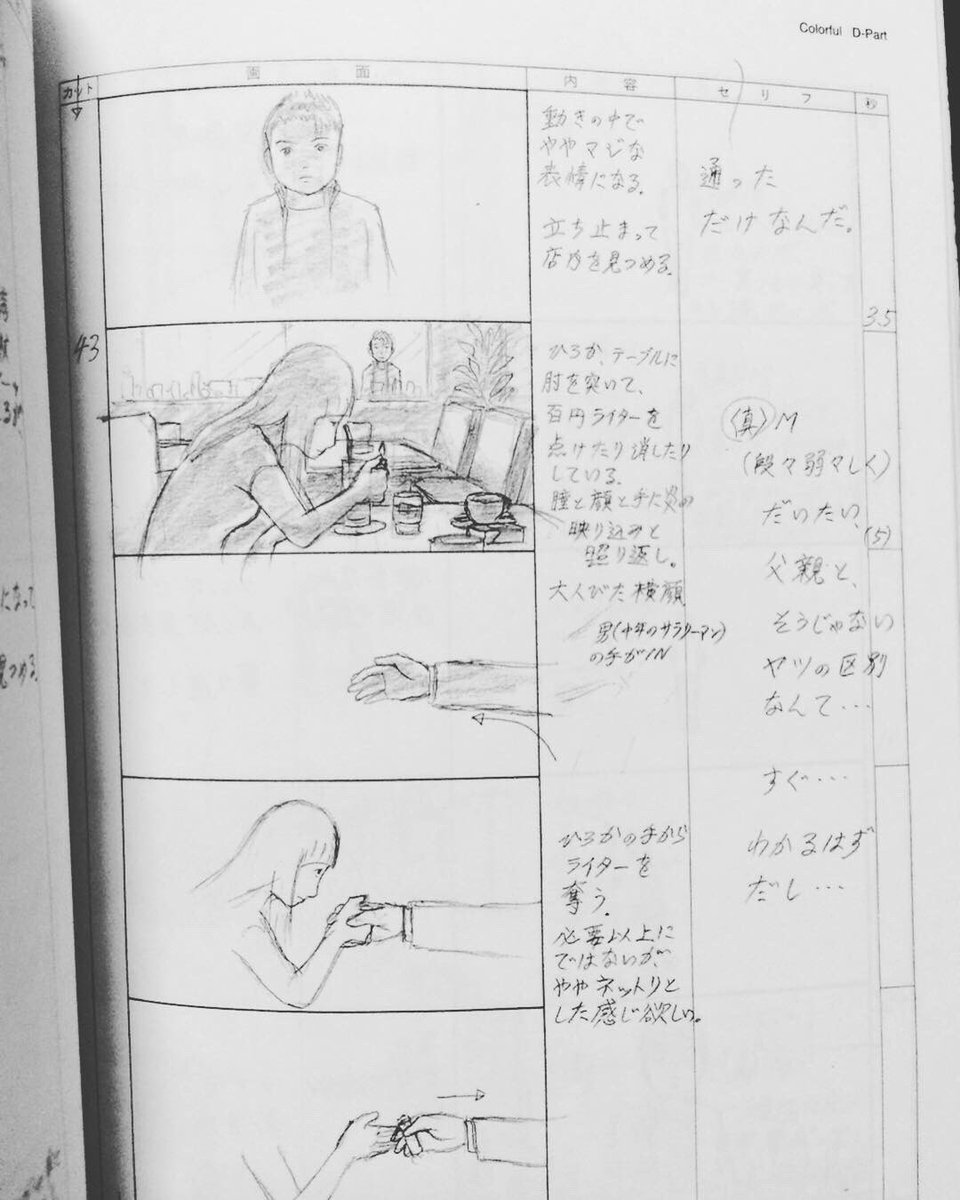 Colorful D-Part
カット
画面
内容
セリフ
秒
動きの中で
ややマジな
表情になる。
立ち止まって
店内を見つめる。
通った
だけなんだ。
35
43
ひろか、テーブルに
肘を突いて、
百円ライターを
点けたり消したり
している。
瞳と顔と手に炎の
映り込みと
照り返し。
大人びた横顔
男(中年のサラリーマン)
の手がIN
〈真〉M
(段々弱々しく)
だいたい、
(5)
父親と、
そうじゃない
ヤツの区別
なんて…
すぐ…
わかるはず
だし…
ひろかの手から
ライターを
奪う。
必要以上に
ではないが、
ややネットリと
した感じ欲しい。